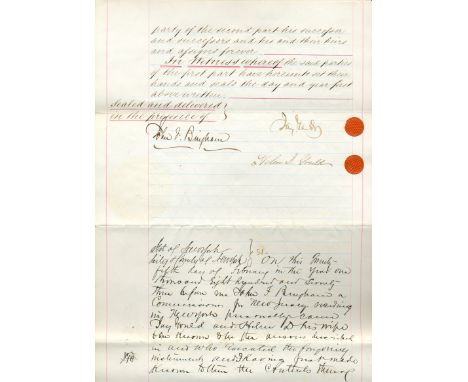 party of the second part his successor
and successors and his and their heirs
and assigns forever
In Witness whereof the said parties
of the first part have hereunto set their
hands and seals the day and year first
above written.
Sealed and delivered
in the presence of
John F. Bingham
Jay Gould
Helen D. Gould
State of New York
City & County of New York } ss.
On this twenty-
fifth day of in the year one
thousand eight hundred and seventy
three before me John F Bingham a
Commissioner for New Jersey residing
in New York personally came
Jay Gould and Helen D his wife
to me known to be the persons described
in and who executed the foregoing
instrument and I having first made
known to them the contents thereof